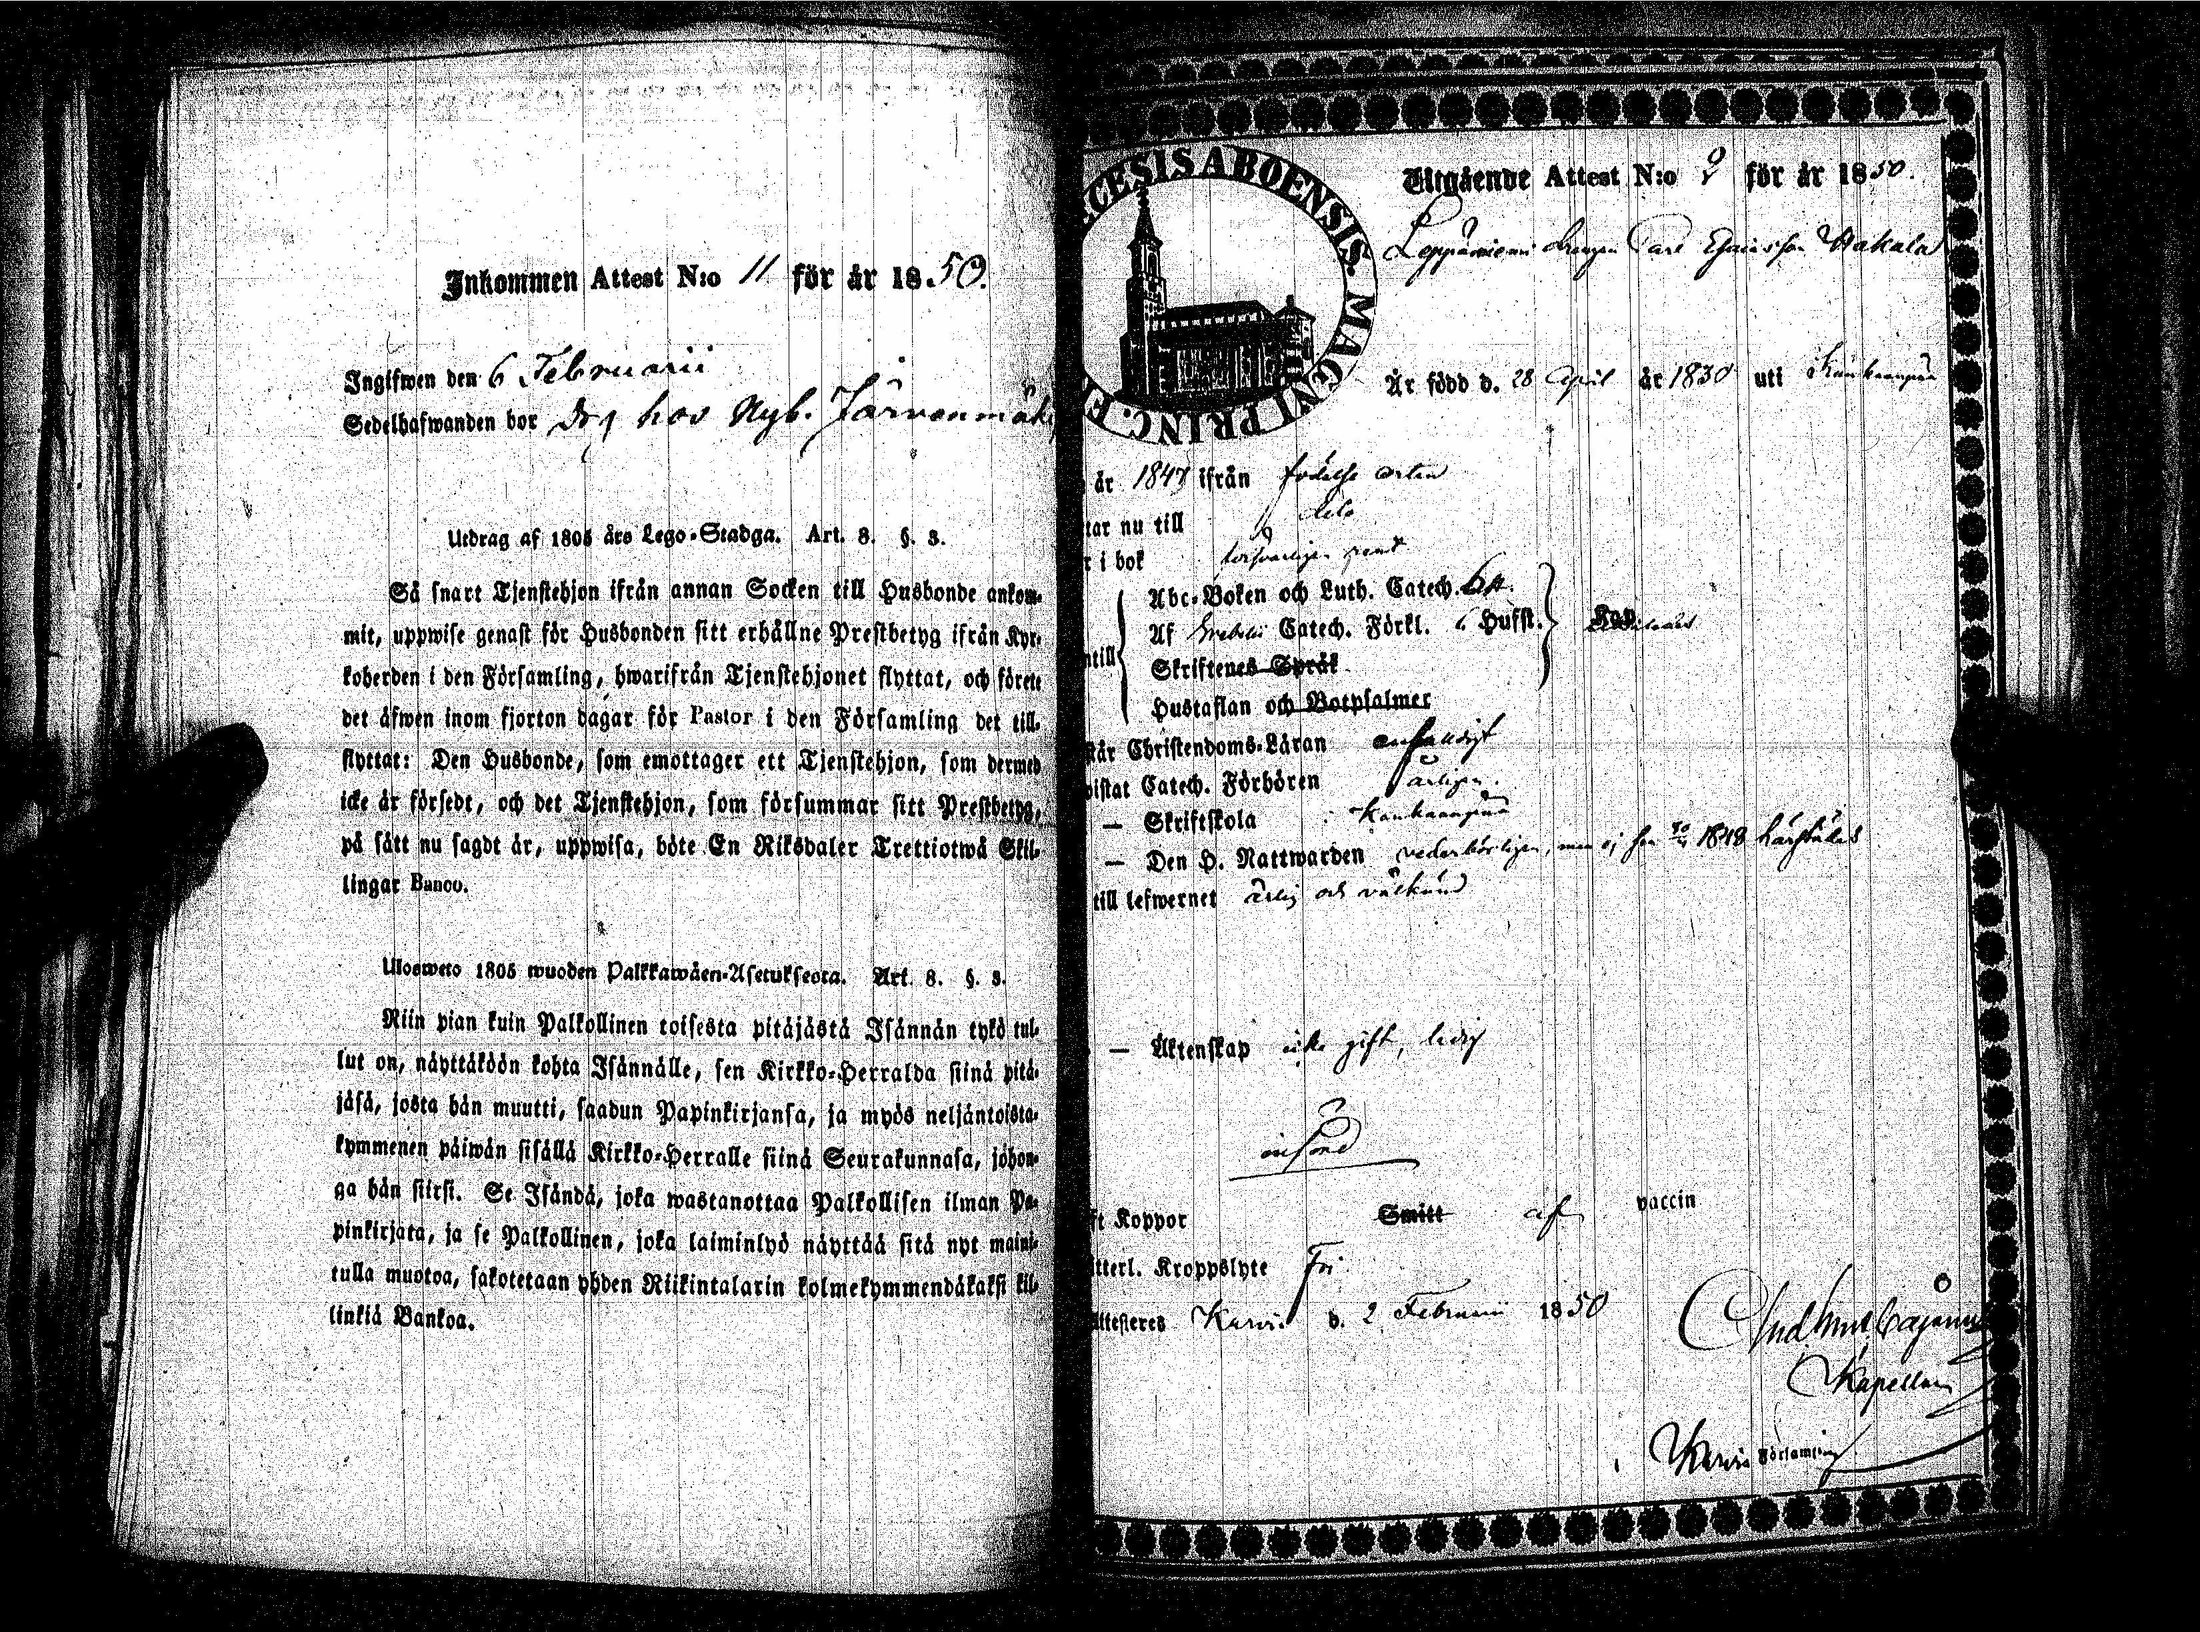 Inkommen Attest N:o 11 för år 1850.
Ingifwen den 6 Februarii
Sedelhafwanden bor Drg hos Nyb. Järvenmäk
Utdrag af 1805 års Lego-Stadga. Art. 8. §. 3.
Så snart Tjenstehjon ifrån annan Socken till Husbonde ankom-
mit, uppwise genast för Husbonden sitt erhållne Prestbetyg ifrån Kyr-
koherden i den Församling, hwarifrån Tjenstehjonet flyttat, och förete
det äfwen inom fjorton dagar för Pastor i den Församling det till-
flyttat: Den Husbonde, som emottager ett Tjenstehjon, som dermed
icke är försedt, och det Tjenstehjon, som försummar sitt Prestbetyg,
på sätt nu sagdt är, uppwisa, böte En Riksdaler Trettiotwå Skil-
lingar Banco.
Ulosweto 1805 wuoden Palkkawäen-Asetuksesta. Art. 8. §. 3.
Niin pian kuin Palkollinen toisesta pitäjästä Isännän tykö tul-
lut on, näyttäköön kohta Isännälle, sen Kirkko-Herralda siinä pitä-
jäsä, josta hän muutti, saadun Papinkirjansa, ja myös neljäntoista-
kymmenen päiwän sisällä Kirkko-Herralle siinä Seurakunnasa, johon-
ga hän siirsi. Se Isändä, joka wastanottaa Palkollisen ilman Pa-
pinkirjata, ja se Palkollinen, joka laiminlyö näyttää sitä nyt maini-
tulla muotoa, sakotetaan yhden Riikintalarin kolmekymmendäkaksi kil-
linkiä Bankoa.
CESIS ABOENSIS. MAGNI PRINC. F
Utgående Attest N:o 9 för år 1850.
Leppäniemi drengen Carl Wakala
Är född d. 28 April år 1830 uti Kankaanpää
år 1847 ifrån födelse orten
tar nu till dito
r i bok försvarligen rent
Abc-Boken och Luth. Catech.
Af Catech. Förkl. 6 Hufst.
ntill
Skriftenes Språk
Hustaflan och Botpsalmer
står Christendoms-Läran enfaldigt
wistat Catech. Förhören årligen.
— Skriftskola Kankaanpää
— Den H. Nattwarden vederbörligen, men ej här 1848
till lefwernet ärlig och välkänd
— Äktenskap icke gift, ledig
införd
ft Koppor Smitt af vaccin
tterl. Kroppslyte Fri
Attesteras Karvia d. 2 Februarii 1850
Cajanus
Kapellan
Karvia Församling